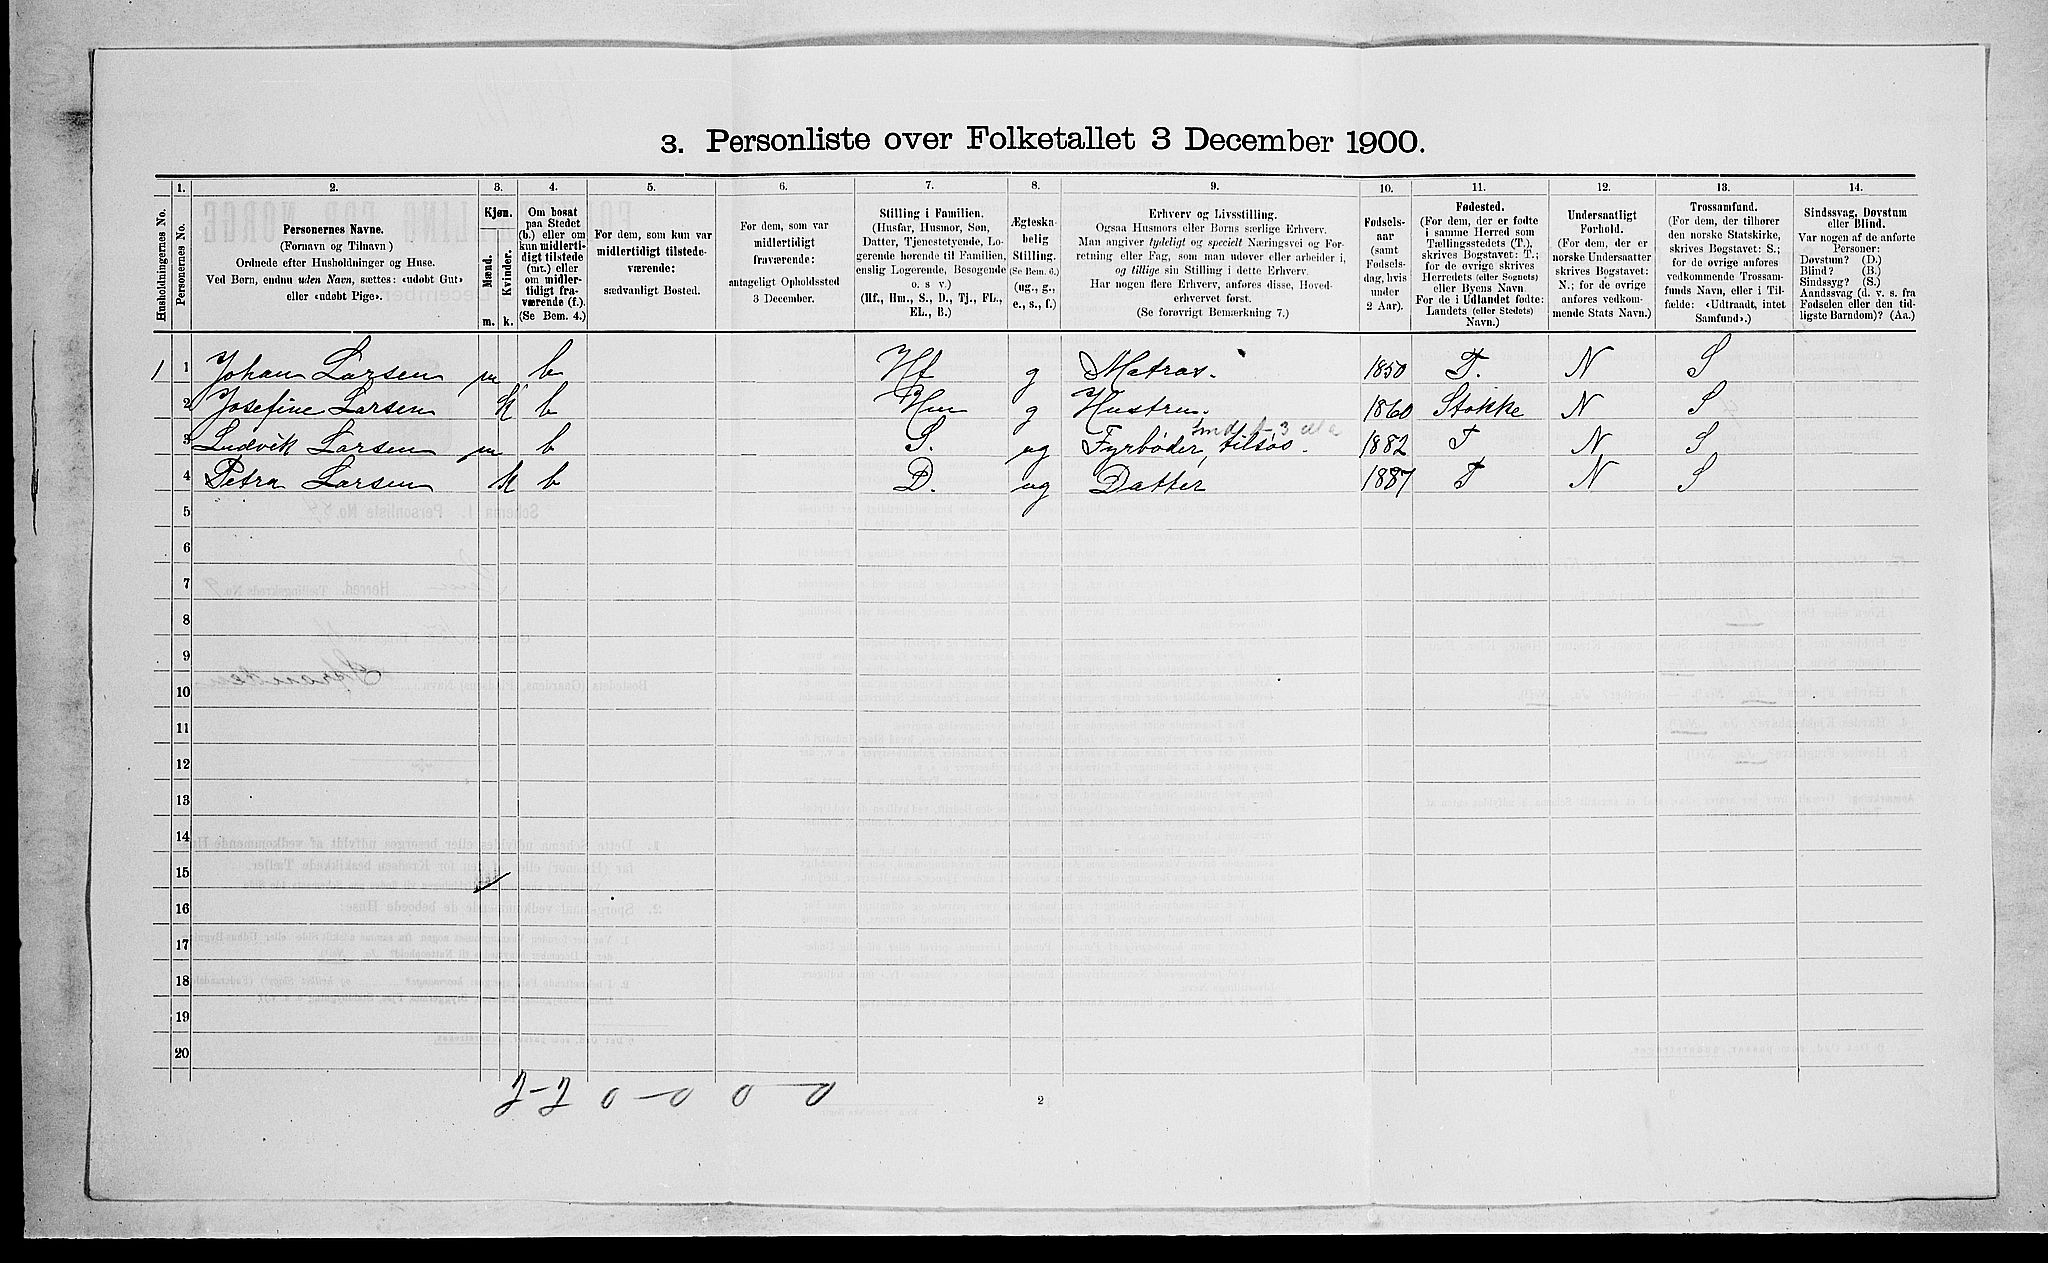 3. Personliste over Folketallet 3 December 1900.
1. 2. 3. 4. 5. 6. 7. 8. 9. 10. 11. 12. 13. 14.
Husholdningernes No.
Personernes No.
Personernes Navne.
(Fornavn og Tilnavn)
Ordnede efter Husholdninger og Huse.
Ved Børn, endnu uden Navn, sættes: «udøbt Gut»
eller «udøbt Pige».
Kjøn.
Mænd.
Kvinder.
m. k.
Om bosat
paa Stedet
(b.) eller om
kun midlerti-
digt tilstede
(mt.) eller
om midler-
tidigt fra-
værende (f.).
(Se Bem. 4.)
For dem, som kun var
midlertidigt tilstede-
værende:
sædvanligt Bosted.
For dem, som var
midlertidigt
fraværende:
antageligt Opholdssted
3 December.
Stilling i Familien.
(Husfar, Husmor, Søn,
Datter, Tjenestetyende, Lo-
gerende hørende til Familien,
enslig Logerende, Besøgende
o. s. v.)
(Hf., Hm., S., D., Tj., FL.,
EL., B.)
Ægteska-
belig
Stilling.
(Se Bem. 6.)
(ug., g.,
e., s., f.)
Erhverv og Livsstilling.
Ogsaa Husmors eller Børns særlige Erhverv.
Man angiver tydeligt og specielt Næringsvei og For-
retning eller Fag, som man udøver eller arbeider i,
og tillige sin Stilling i dette Erhverv.
Har nogen flere Erhverv, anføres disse, Hoved-
erhvervet først.
(Se forøvrigt Bemærkning 7.)
Fødsels-
aar
(samt
Fødsels-
dag, hvis
under
2 Aar).
Fødested.
(For dem, der er fødte
i samme Herred som
Tællingsstedets (T.),
skrives Bogstavet: T.;
for de øvrige skrives
Herredets (eller Sognets)
eller Byens Navn.
For de i Udlandet fødte:
Landets (eller Stedets)
Navn.)
Undersaatligt
Forhold.
(For dem, der er
norske Undersaatter
skrives Bogstavet:
N.; for de øvrige
anføres vedkom-
mende Stats Navn.)
Trossamfund.
(For dem, der tilhører
den norske Statskirke,
skrives Bogstavet: S.;
for de øvrige anføres
vedkommende Trossam-
funds Navn, eller i Til-
fælde: «Udtraadt, intet
Samfund».)
Sindssvag, Døvstum
eller Blind.
Var nogen af de anførte
Personer:
Døvstum? (D.)
Blind? (B.)
Sindssyg? (S.)
Aandssvag (d. v. s. fra
Fødselen eller den tid-
ligste Barndom)? (Aa.)
1 1 Johan Larsen m b Hf g Matros. 1850 T. N S
2 Josefine Larsen k b Hm g Hustru. 1860 Stokke N S
3 Ludvik Larsen m b S. ug Fyrbøder, tilsøs. 1882 T N S
4 Petra Larsen k b D. ug Datter 1887 T N S
5
6
7
8
9
10
11
12
13
14
15
16
17
18
19
20
2-2 0-0 0-0
2